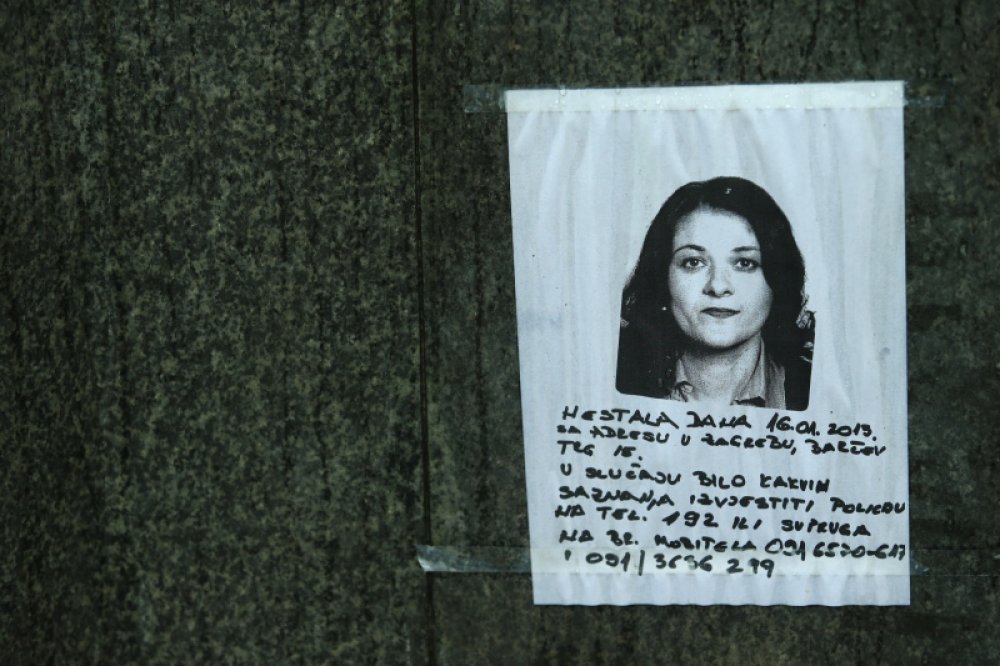 NESTALA DANA 16.01.2013.
SA ADRESU U ZAGREBU,
TRG 15.
U SLUČAJU BILO KAKVIH
SAZNANJA IZVJESTITI POLICIJU
NA TEL. 192 ILI SUPRUGA
NA BR. MOBITELA 091 6570-617
I 091/3696 299